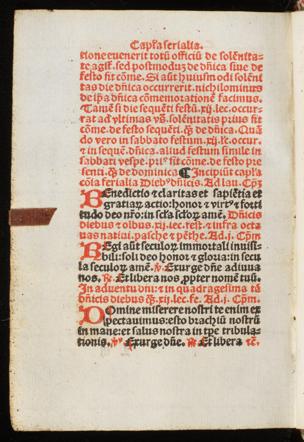 Capl'a ferialia.
tione euenerit totū officiū de solēnita-
te agit̄. sed postmodūz de dñica siue de
festo fit cōme. Si aūt huiusmōi solēni
tas die dñica occurrerit. nichilominus
de ipa dñica cōmemorationē facimus.
Tamē si die sequēti festū .xij. lec. occur
rat ad vltimas vš. solēnitatis prius fit
cōme. de festo sequēti. q̄ de dñica. Quā
do vero in sabbato festum .xij. lc. occur.
et in sequē. dñica. aliud festum simile in
sabbati vespe. priꝰ fit cōme. de festo pre
senti. q̄ de dominica ¶ Incipiūt capl'a
cōia ferialia Diebꝰ dñicis. Ad lau. Cpm̄
BEnedictio et claritas et sapiētia et
gratiaꝝ actio: honor et virtꝰ et forti
tudo deo nr̄o: in scl'a scl'oꝝ amē. Dñicis
diebus et oībus .xij. lec. fest̄. et infra octa
uas natiui. pasche et pēthe. Ad .j. Cpm̄.
REgi aūt seculoꝝ immortali inuisi-
bili: soli deo honor et gloria: in secu
la seculoꝝ amē. ℟ Exurge dñe adiuua
nos. ℟ Et libera nos ꝓpter nomē tuū.
In aduentu dni: et in quadragesima tā
dñicis diebus q̄ .xij. lec. fe. Ad .j. Cpm̄.
DOmine miserere nostri te enim ex
pectauimus: esto brachiū nostrū
in mane: et salus nostra in tpe tribula-
tionis. ℣ Exurge dñe. ℟ Et libera ⁊c.